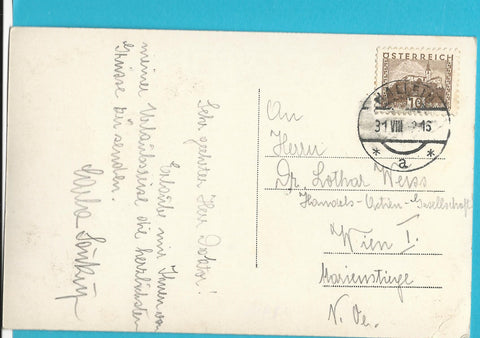 Sehr geehrter Herr Doktor!
Erlaube mir Ihnen von
meiner Urlaubsreise die herzlichsten
Grüsse zu senden.
ÖSTERREICH
31 VIII
* a *
An
Herrn
Dr. Lothar Weiss
Handels-Actien-Gesellschaft
Wien I.
Marienstiege
N. Oe.